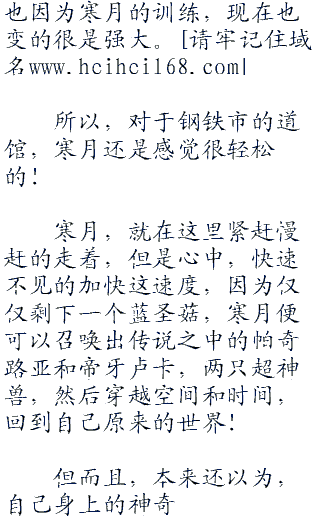 也因为寒月的训练，现在也
变的很是强大。[请牢记住域
名www.hcihcil68.com|
所以，对于钢铁市的道
馆，寒月还是感觉很轻松
的!
寒月，就在这里紧赶慢
赶的走着，但是心中，快速
不见的加快这速度，因为仅
仅剩下一个蓝圣菇，寒月便
可以召唤出传说之中的帕奇
路亚和帝牙卢卡，两只超神
兽，然后穿越空间和时间，
回到自己原来的世界!
但而且，本来还以为，
自己身上的神奇